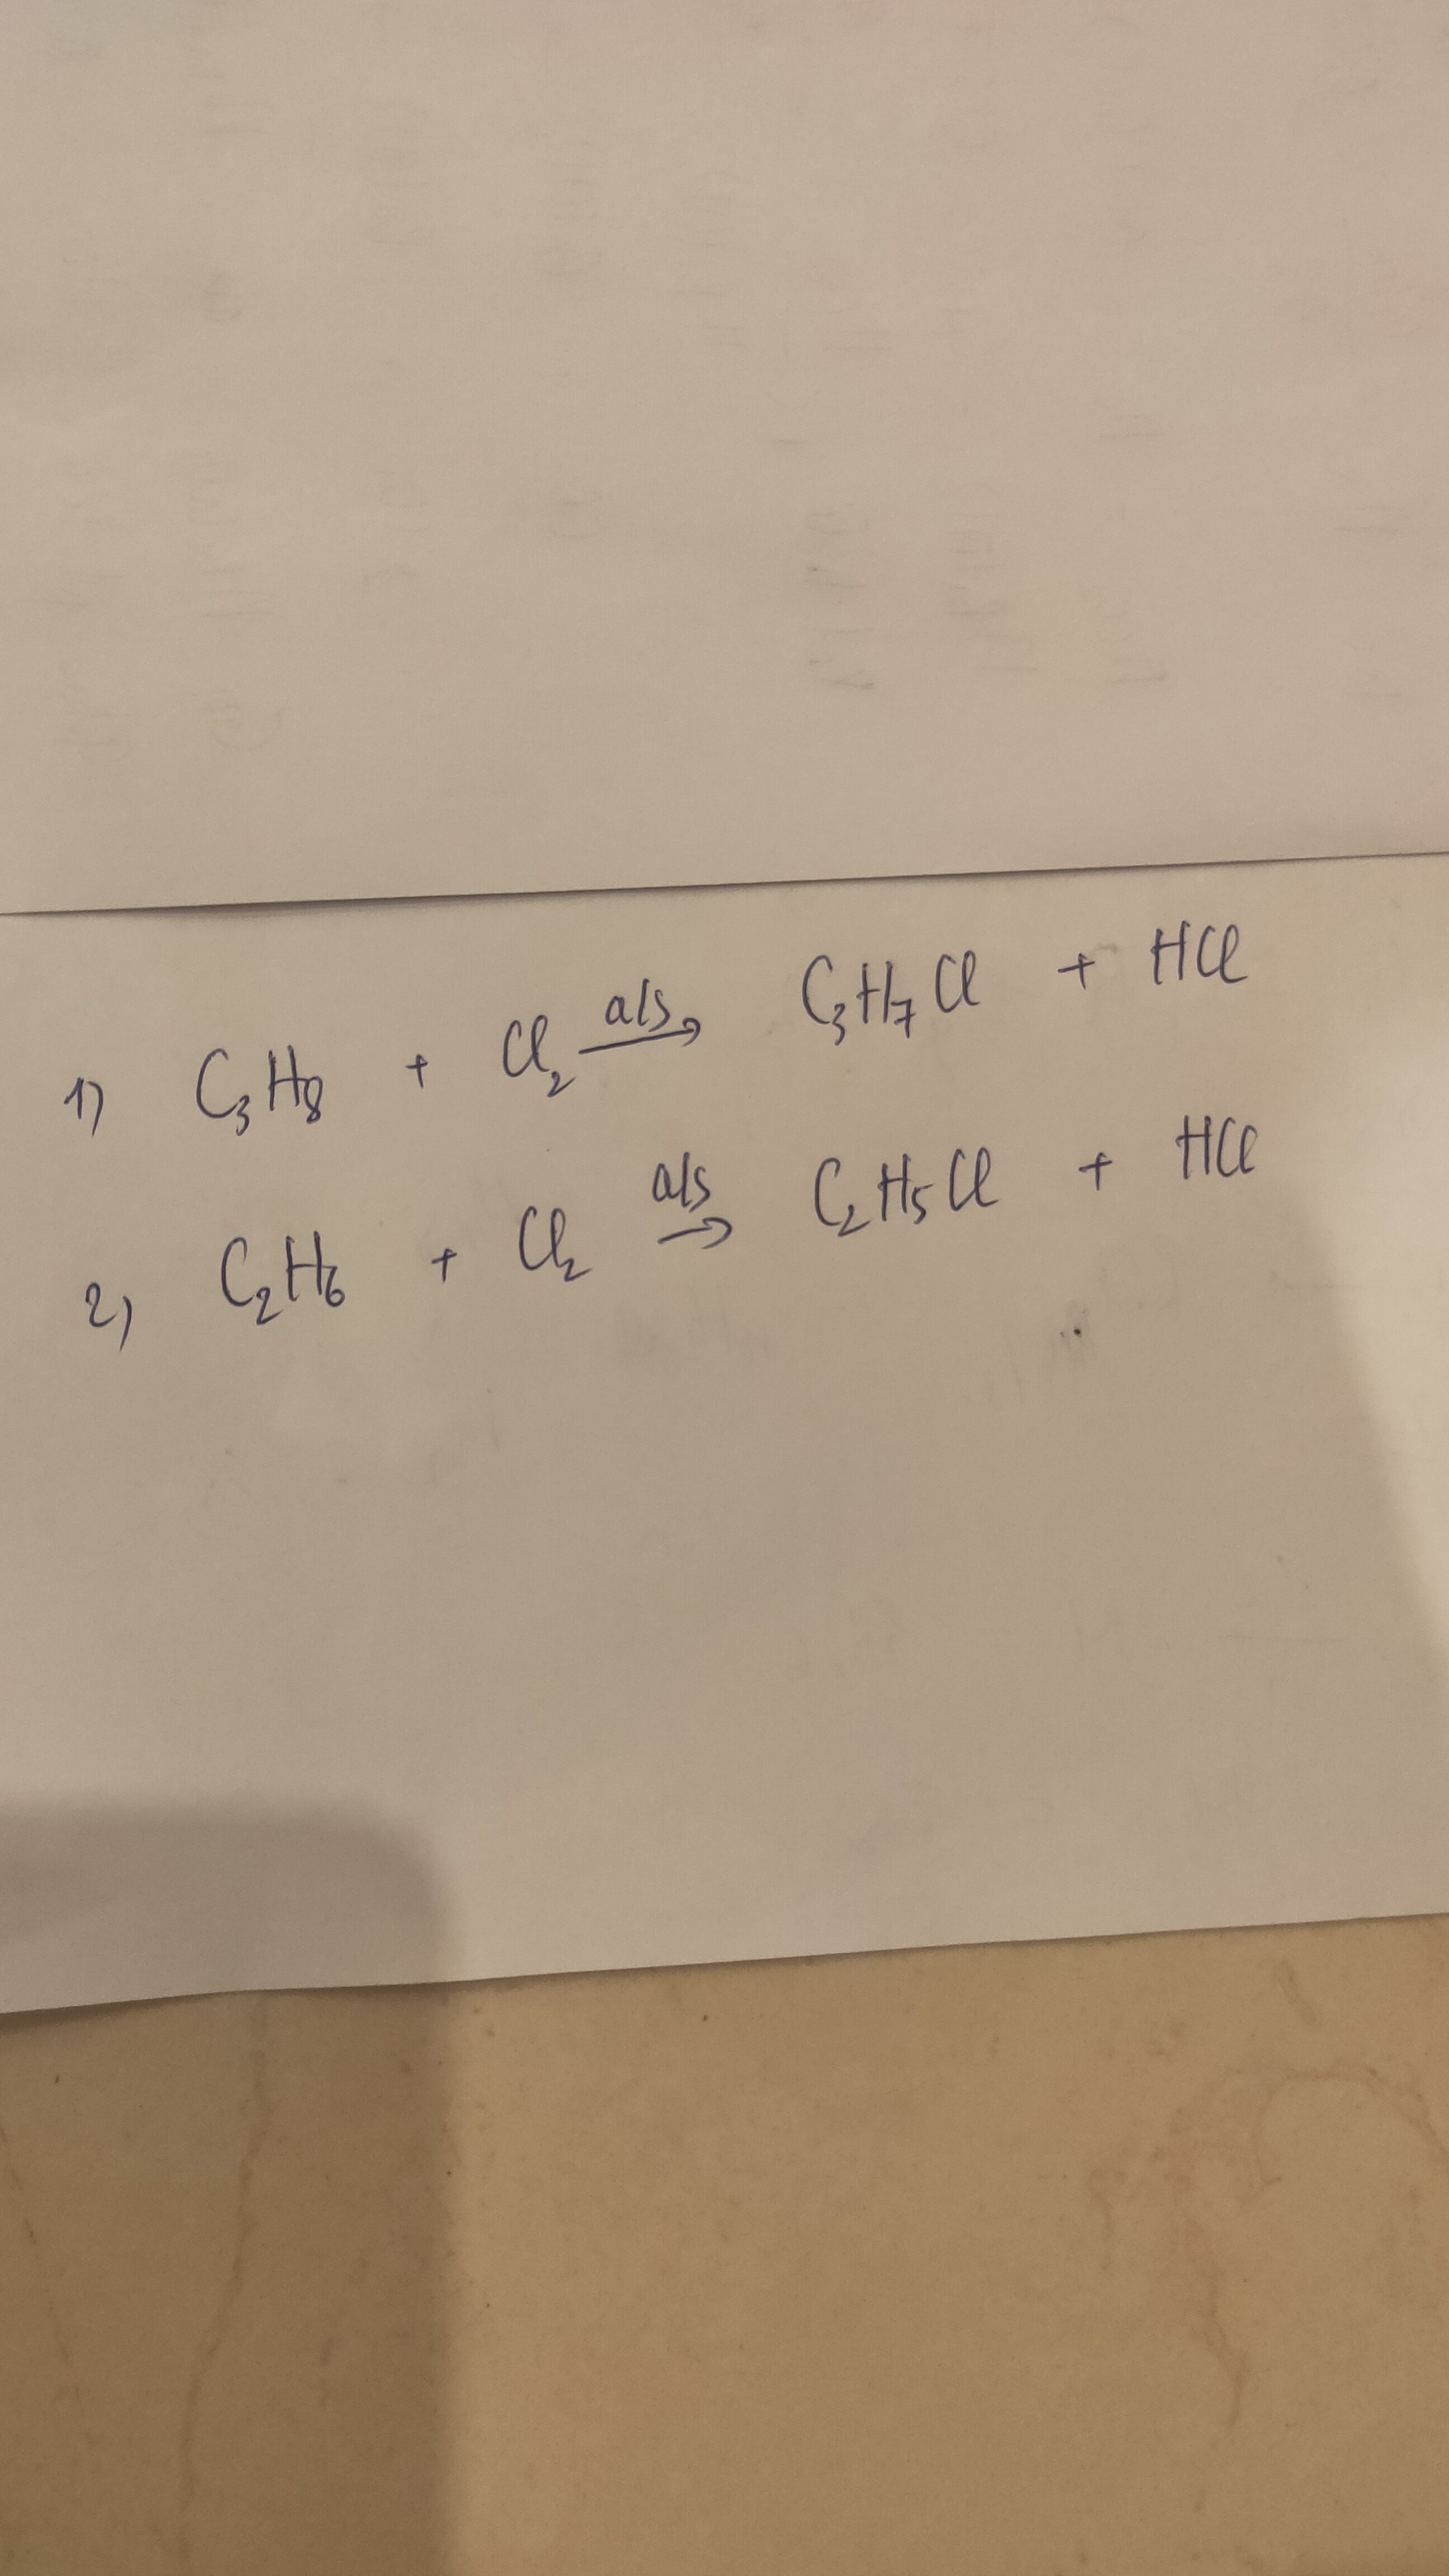 1) C₃H₈ + Cl₂ –als→ C₃H₇Cl + HCl
2) C₂H₆ + Cl₂ –als→ C₂H₅Cl + HCl